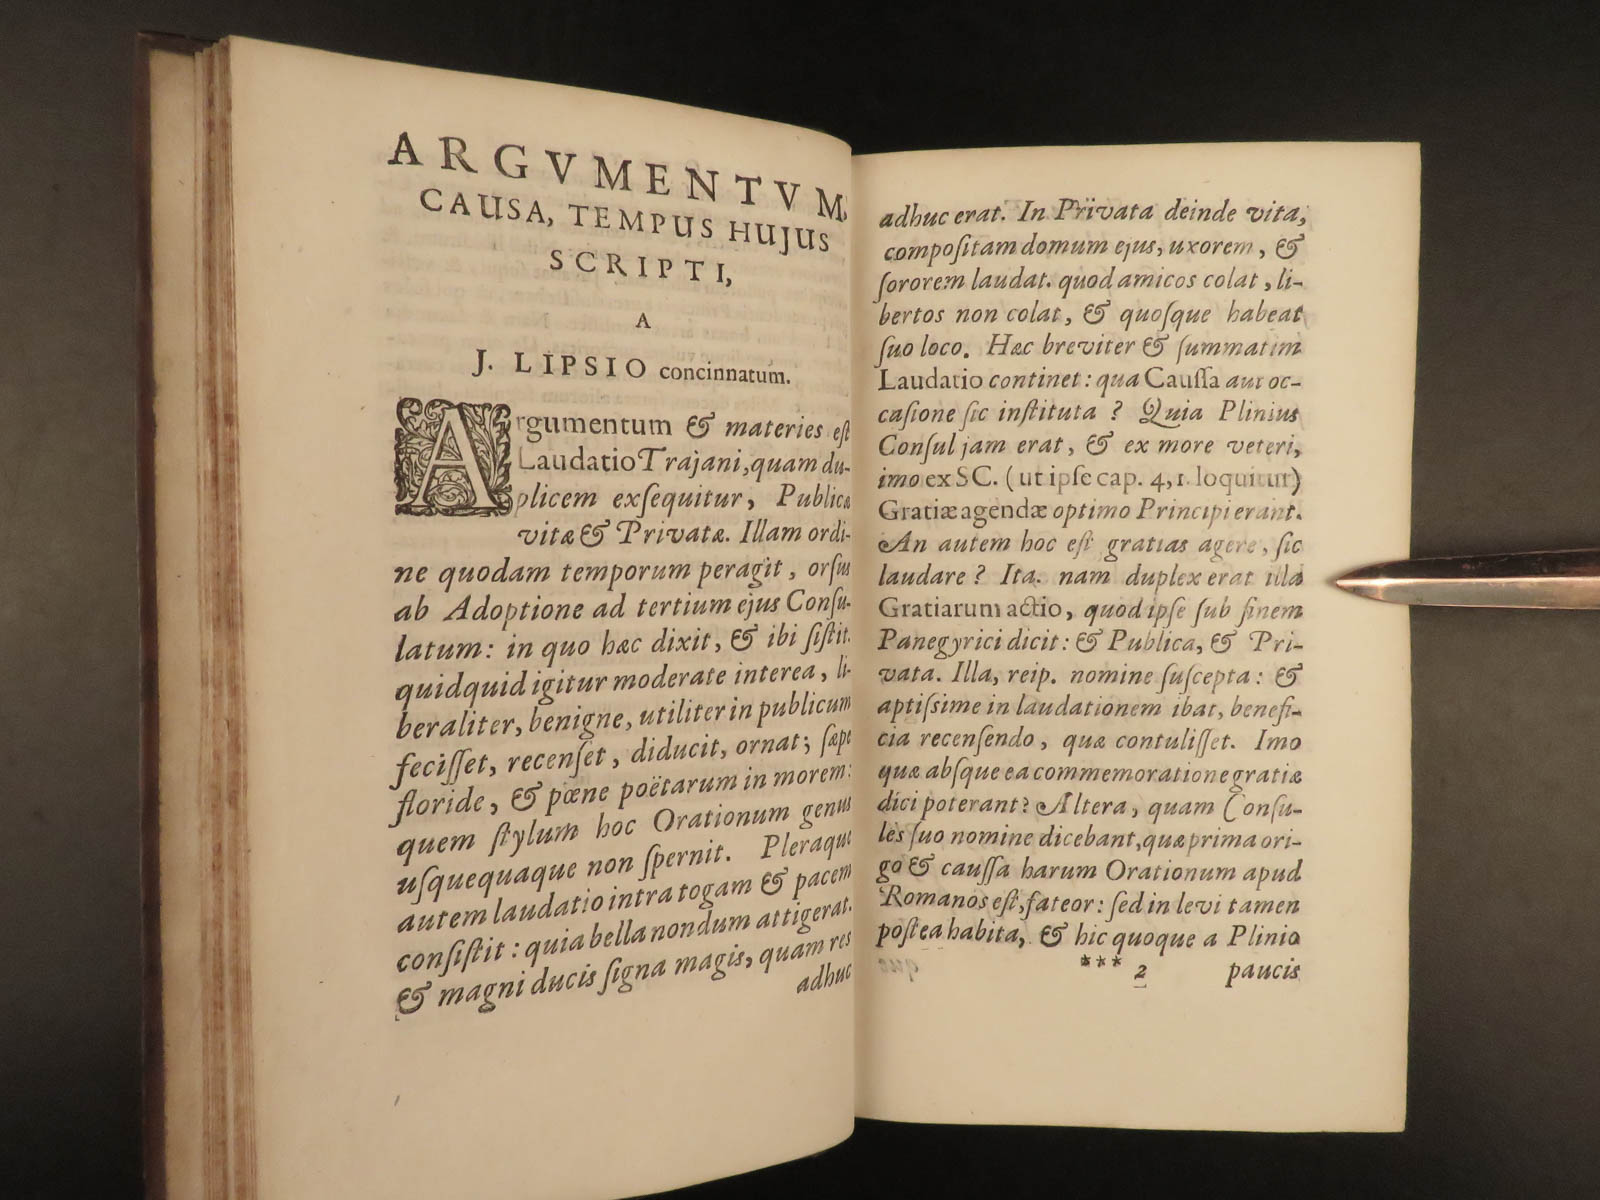 ARGVMENTVM,
CAUSA, TEMPUS HUJUS
SCRIPTI,
A
J. LIPSIO concinnatum.
Argumentum & materies eſt
Laudatio Trajani, quam du-
plicem exſequitur, Publicæ
vitæ & Privatæ. Illam ordi-
ne quodam temporum peragit, orſus
ab Adoptione ad tertium ejus Conſu-
latum: in quo hæc dixit, & ibi ſiſtit.
quidquid igitur moderate interea, li-
beraliter, benigne, utiliter in publicum
feciſſet, recenſet, diducit, ornat; ſæpe
floride, & pœne poëtarum in morem:
quem ſtylum hoc Orationum genus
uſquequaque non ſpernit. Pleraque
autem laudatio intra togam & pacem
conſiſtit: quia bella nondum attigerat.
& magni ducis ſigna magis, quam res
adhuc
adhuc erat. In Privata deinde vita,
compoſitam domum ejus, uxorem, &
ſororem laudat. quod amicos colat, li-
bertos non colat, & quoſque habeat
ſuo loco. Hæc breviter & ſummatim
Laudatio continet: qua Cauſſa aut oc-
caſione ſic inſtituta? Quia Plinius
Conſul jam erat, & ex more veteri,
imo ex SC. (ut ipſe cap. 4, 1. loquitur)
Gratiæ agendæ optimo Principi erant.
An autem hoc eſt gratias agere, ſic
laudare? Ita. nam duplex erat illa
Gratiarum actio, quod ipſe ſub finem
Panegyrici dicit: & Publica, & Pri-
vata. Illa, reip. nomine ſuſcepta: &
aptiſſime in laudationem ibat, benefi-
cia recenſendo, quæ contuliſſet. Imo
quæ absque ea commemoratione gratiæ
dici poterant? Altera, quam Conſu-
les ſuo nomine dicebant, quæ prima ori-
go & cauſſa harum Orationum apud
Romanos eſt, fateor: ſed in levi tamen
poſtea habita, & hic quoque a Plinio
*** 2 paucis